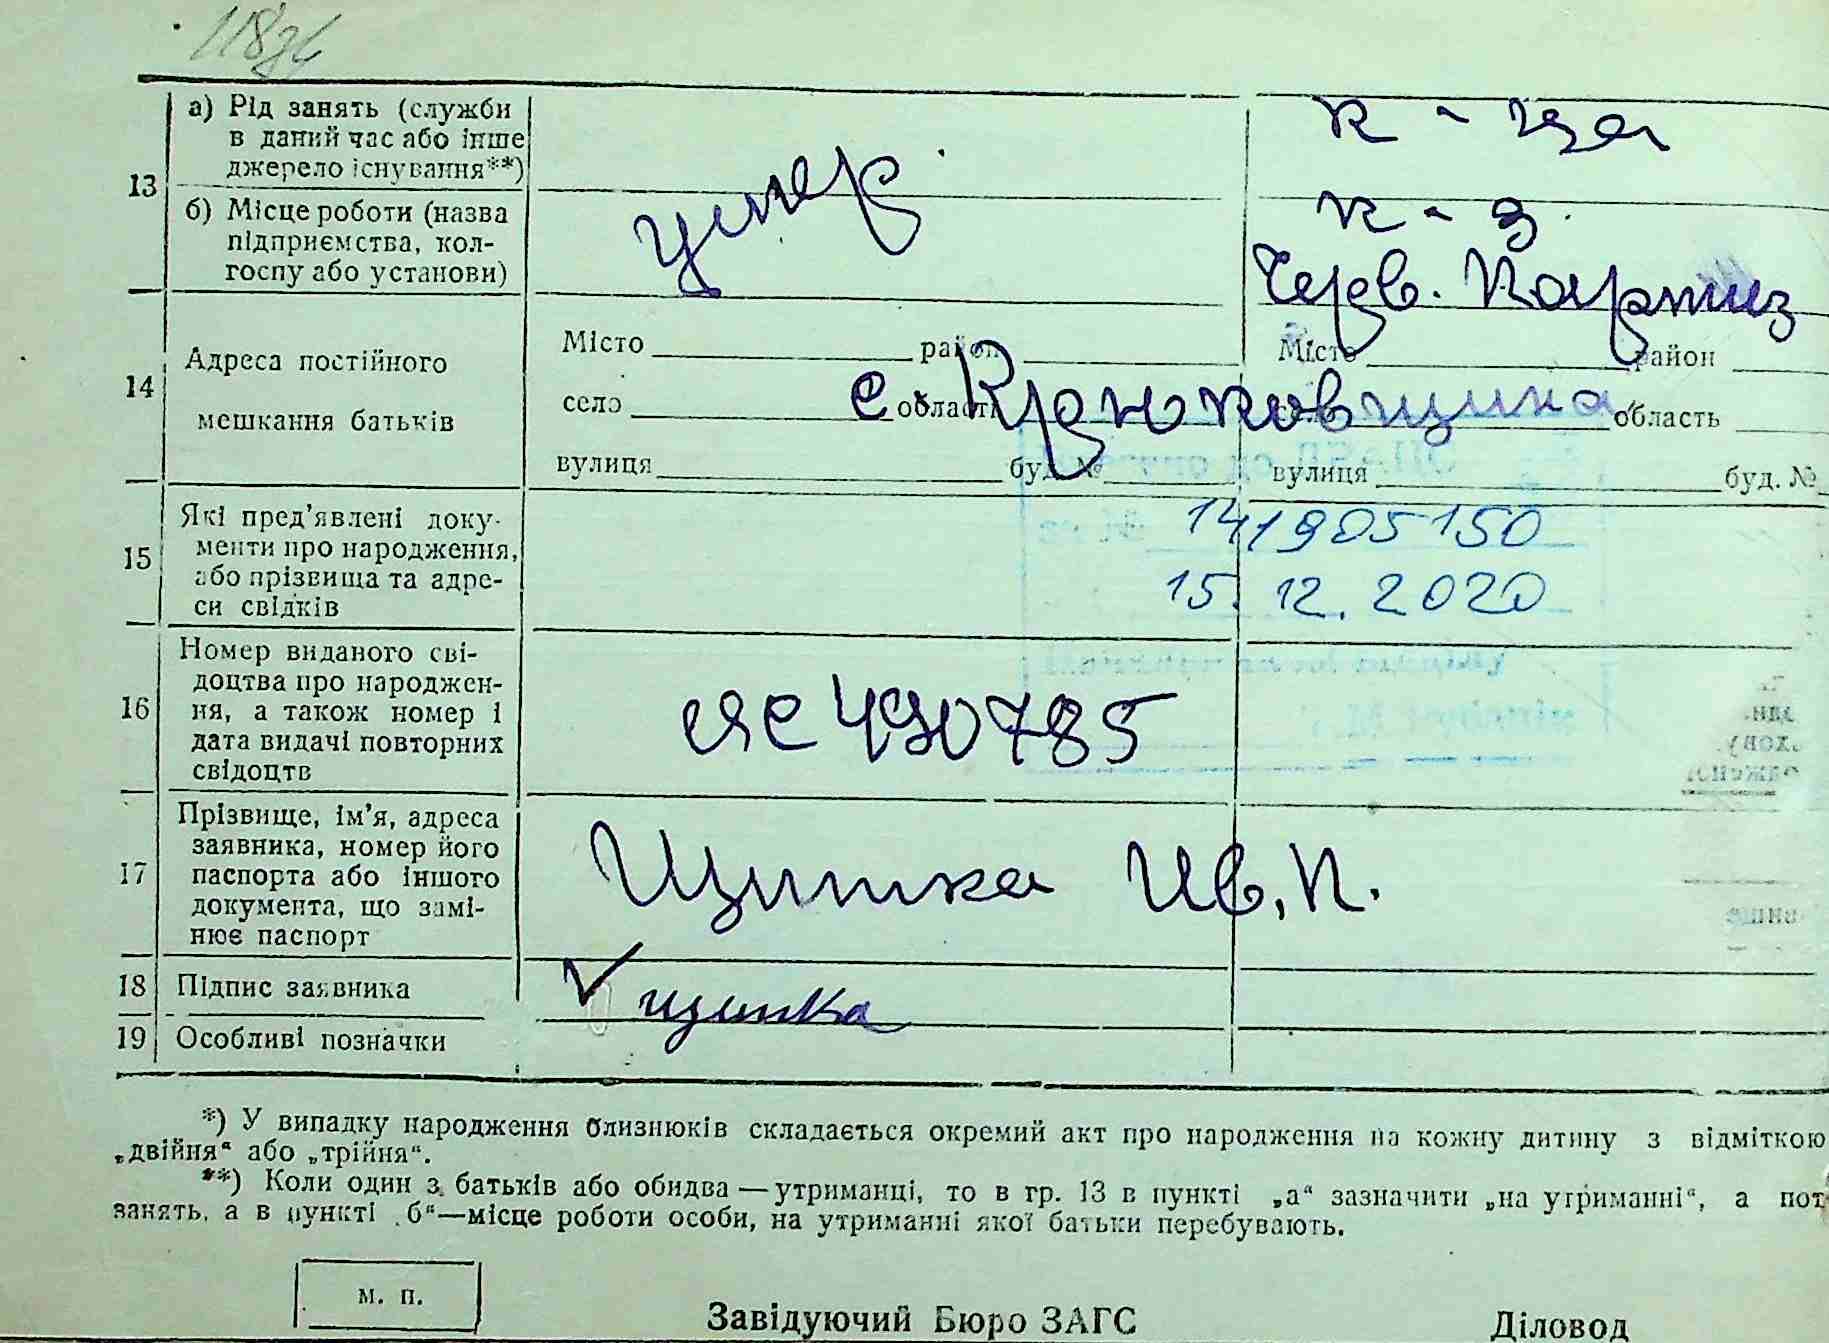 118
13
а) Рід занять (служби
в даний час або інше
джерело існування**)
к - ца
б) Місце роботи (назва
підприємства, кол-
госпу або установи)
умер
к - з.
Черв. Партиз
14
Адреса постійного
мешкання батьків
Місто район
село область
вулиця буд. №
Місто район
область
вулиця буд. №
с. Крюковщина
15
Які пред'явлені доку-
менти про народження,
або прізвища та адре-
си свідків
141905150
15.12.2020
16
Номер виданого сві-
доцтва про народжен-
ня, а також номер і
дата видачі повторних
свідоцтв
ЯС 490785
17
Прізвище, ім'я, адреса
заявника, номер його
паспорта або іншого
документа, що замі-
нює паспорт
Ив. П.
18 Підпис заявника
19 Особливі позначки
*) У випадку народження близнюків складається окремий акт про народження на кожну дитину з відміткою
„двійня“ або „трійня“.
**) Коли один з батьків або обидва — утриманці, то в гр. 13 в пункті „а“ зазначити „на утриманні“, а пот
занять, а в пункті „б“—місце роботи особи, на утриманні якої батьки перебувають.
м. п.
Завідуючий Бюро ЗАГС
Діловод